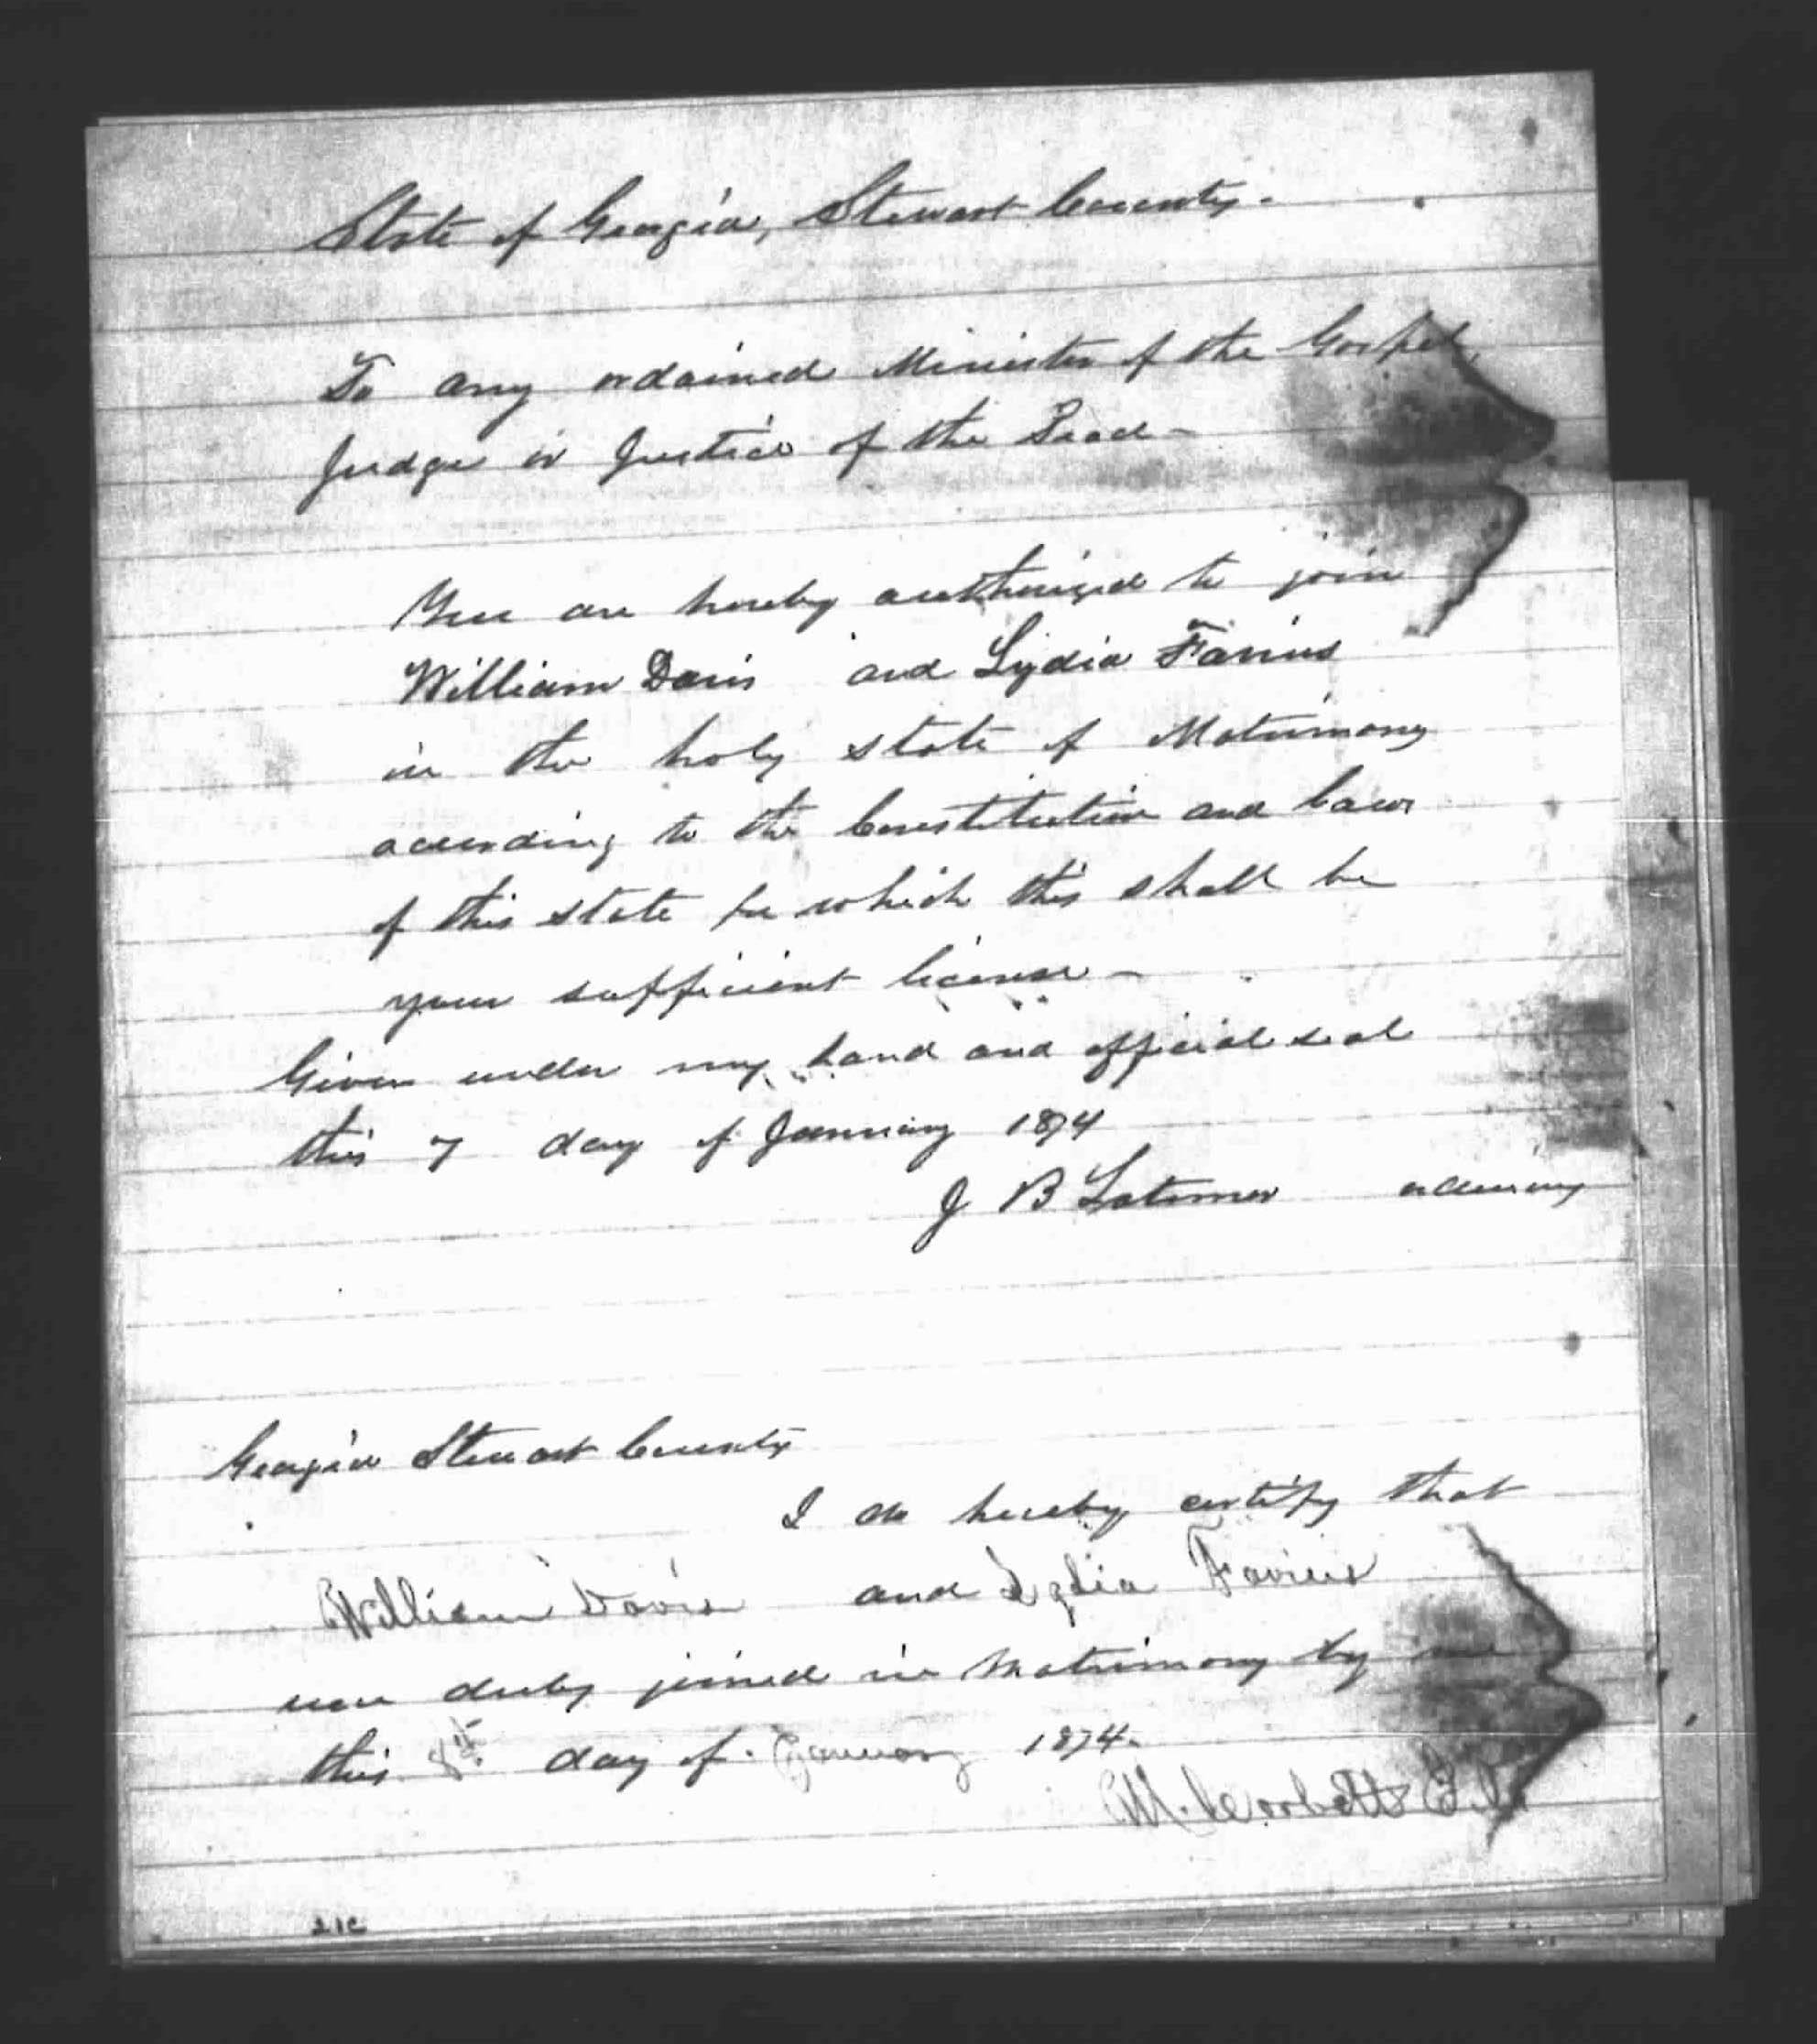 State of Georgia, Stewart County.
To any ordained Minister of the Gospel,
Judge or Justice of the Peace -
You are hereby authorized to join
William Davis and Lydia Farius
in the holy state of Matrimony
according to the Constitution and Laws
of this state for which this shall be
your sufficient license -
Given under my hand and official seal
this 7 day of January 1874
J B Latimer ordinary
Georgia Stewart County
I do hereby certify that
William Davis and Lydia Farius
were duly joined in Matrimony by me
this 8th day of January 1874.
M. Corbett
21C